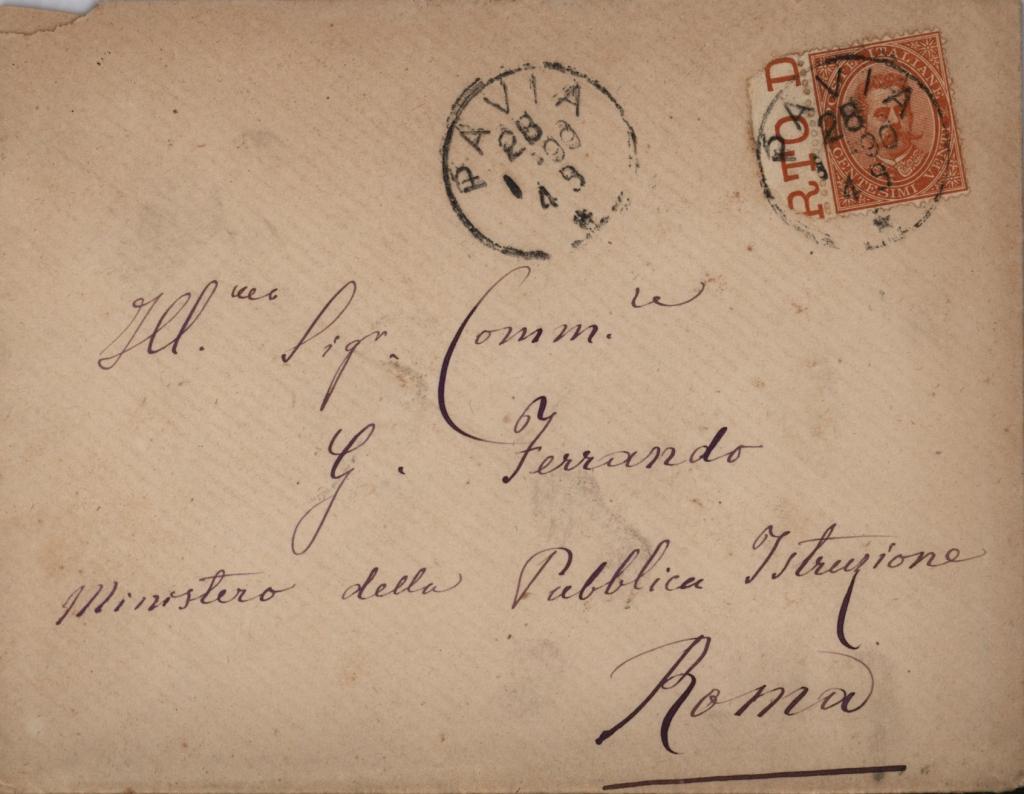 PAVIA
28
1 90
4 S
*
RTO D
POSTE ITALIANE
CENTESIMI VENTI
PAVIA
28
90
4 S
*
Ill.mo Sigr. Comm.re
G. Ferrando
Ministero della Pubblica Istruzione
Roma